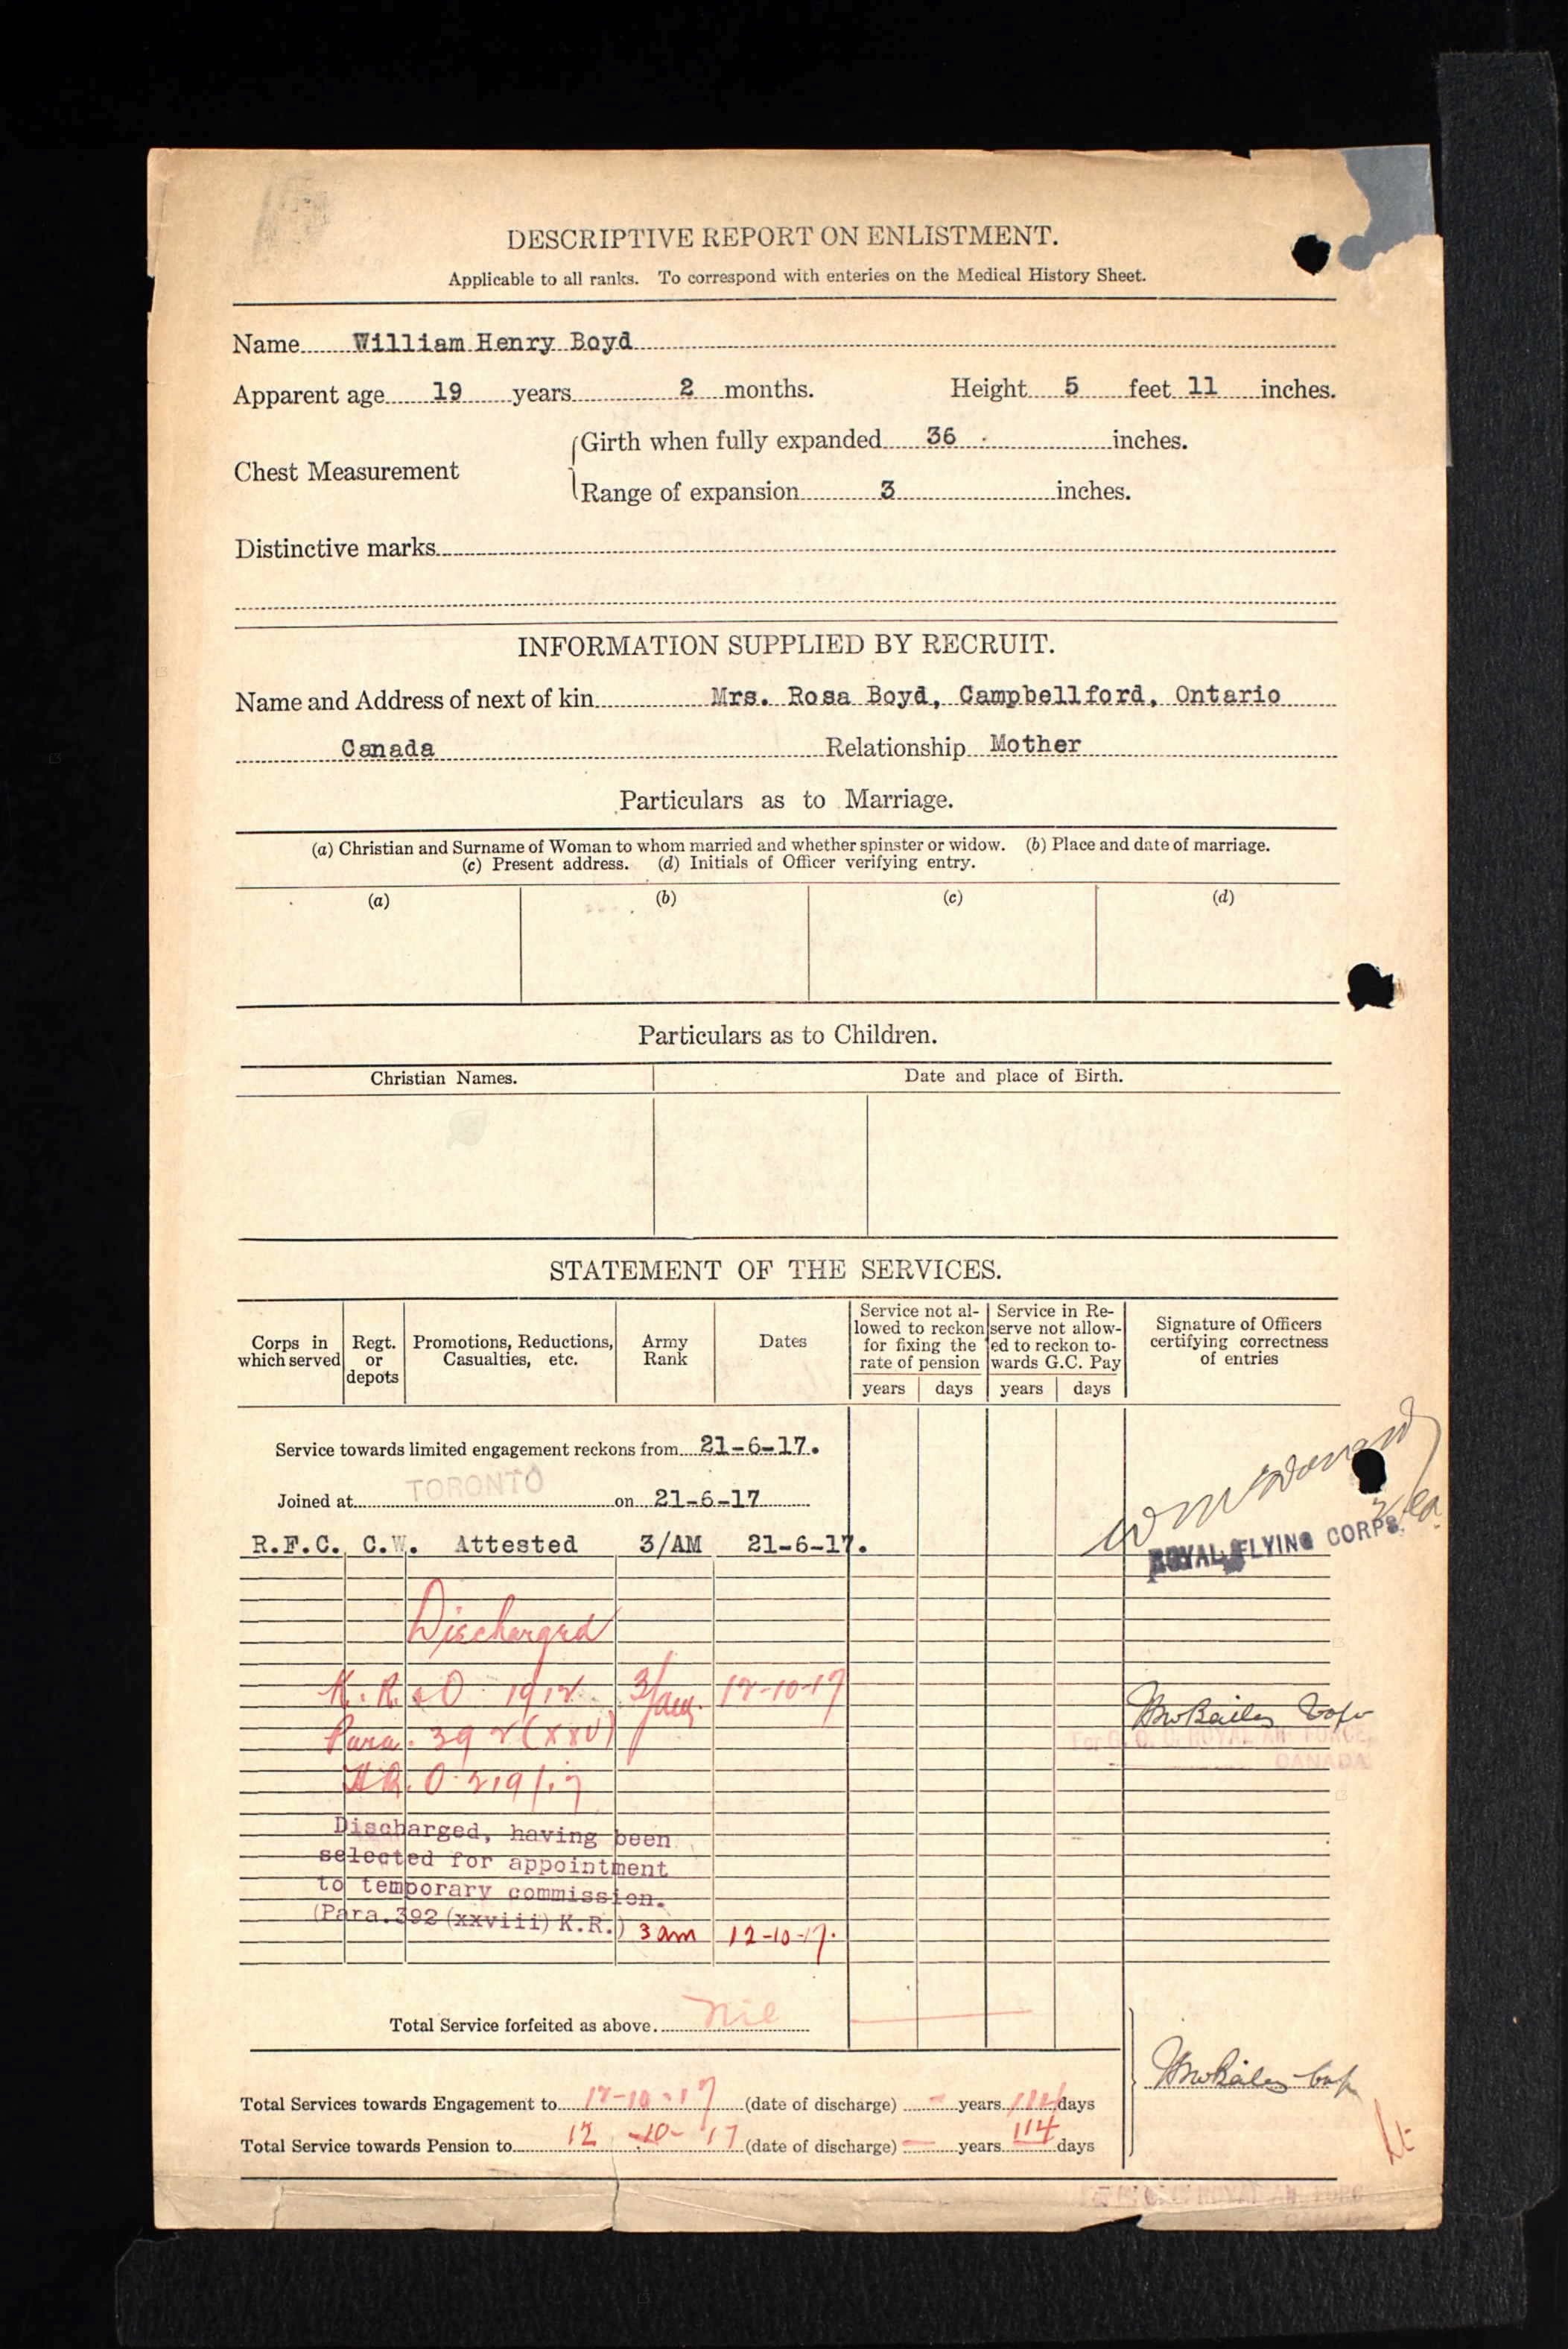 DESCRIPTIVE REPORT ON ENLISTMENT.
Applicable to all ranks. To correspond with enteries on the Medical History Sheet.
Name William Henry Boyd
Apparent age 19 years 2 months. Height 5 feet 11 inches.
Girth when fully expanded 36 inches.
Chest Measurement
Range of expansion 3 inches.
Distinctive marks
INFORMATION SUPPLIED BY RECRUIT.
Name and Address of next of kin Mrs. Rosa Boyd, Campbellford, Ontario
Canada Relationship Mother
Particulars as to Marriage.
(a) Christian and Surname of Woman to whom married and whether spinster or widow. (b) Place and date of marriage.
(c) Present address. (d) Initials of Officer verifying entry.
(a) (b) (c) (d)
Particulars as to Children.
Christian Names. Date and place of Birth.
STATEMENT OF THE SERVICES.
Corps in which served
Regt. or depots
Promotions, Reductions, Casualties, etc.
Army Rank
Dates
Service not al-
lowed to reckon
for fixing the
rate of pension
years days
Service in Re-
serve not allow-
ed to reckon to-
wards G.C. Pay
years days
Signature of Officers
certifying correctness
of entries
Service towards limited engagement reckons from 21-6-17.
Joined at TORONTO on 21-6-17
R.F.C. C.W. Attested 3/AM 21-6-17.
ROYAL FLYING CORPS.
Discharged
K.R. & O 1912 3/AM 12-10-17
Para. 392 (XXV)
CANADA
O 219/17
Discharged, having been
selected for appointment
to temporary commission.
(Para.392 (xxviii) K.R.) 3 am 12-10-17.
Total Service forfeited as above. Nil
Total Services towards Engagement to 12-10-17 (date of discharge) - years 114 days
Total Service towards Pension to 12-10-17 (date of discharge) - years 114 days